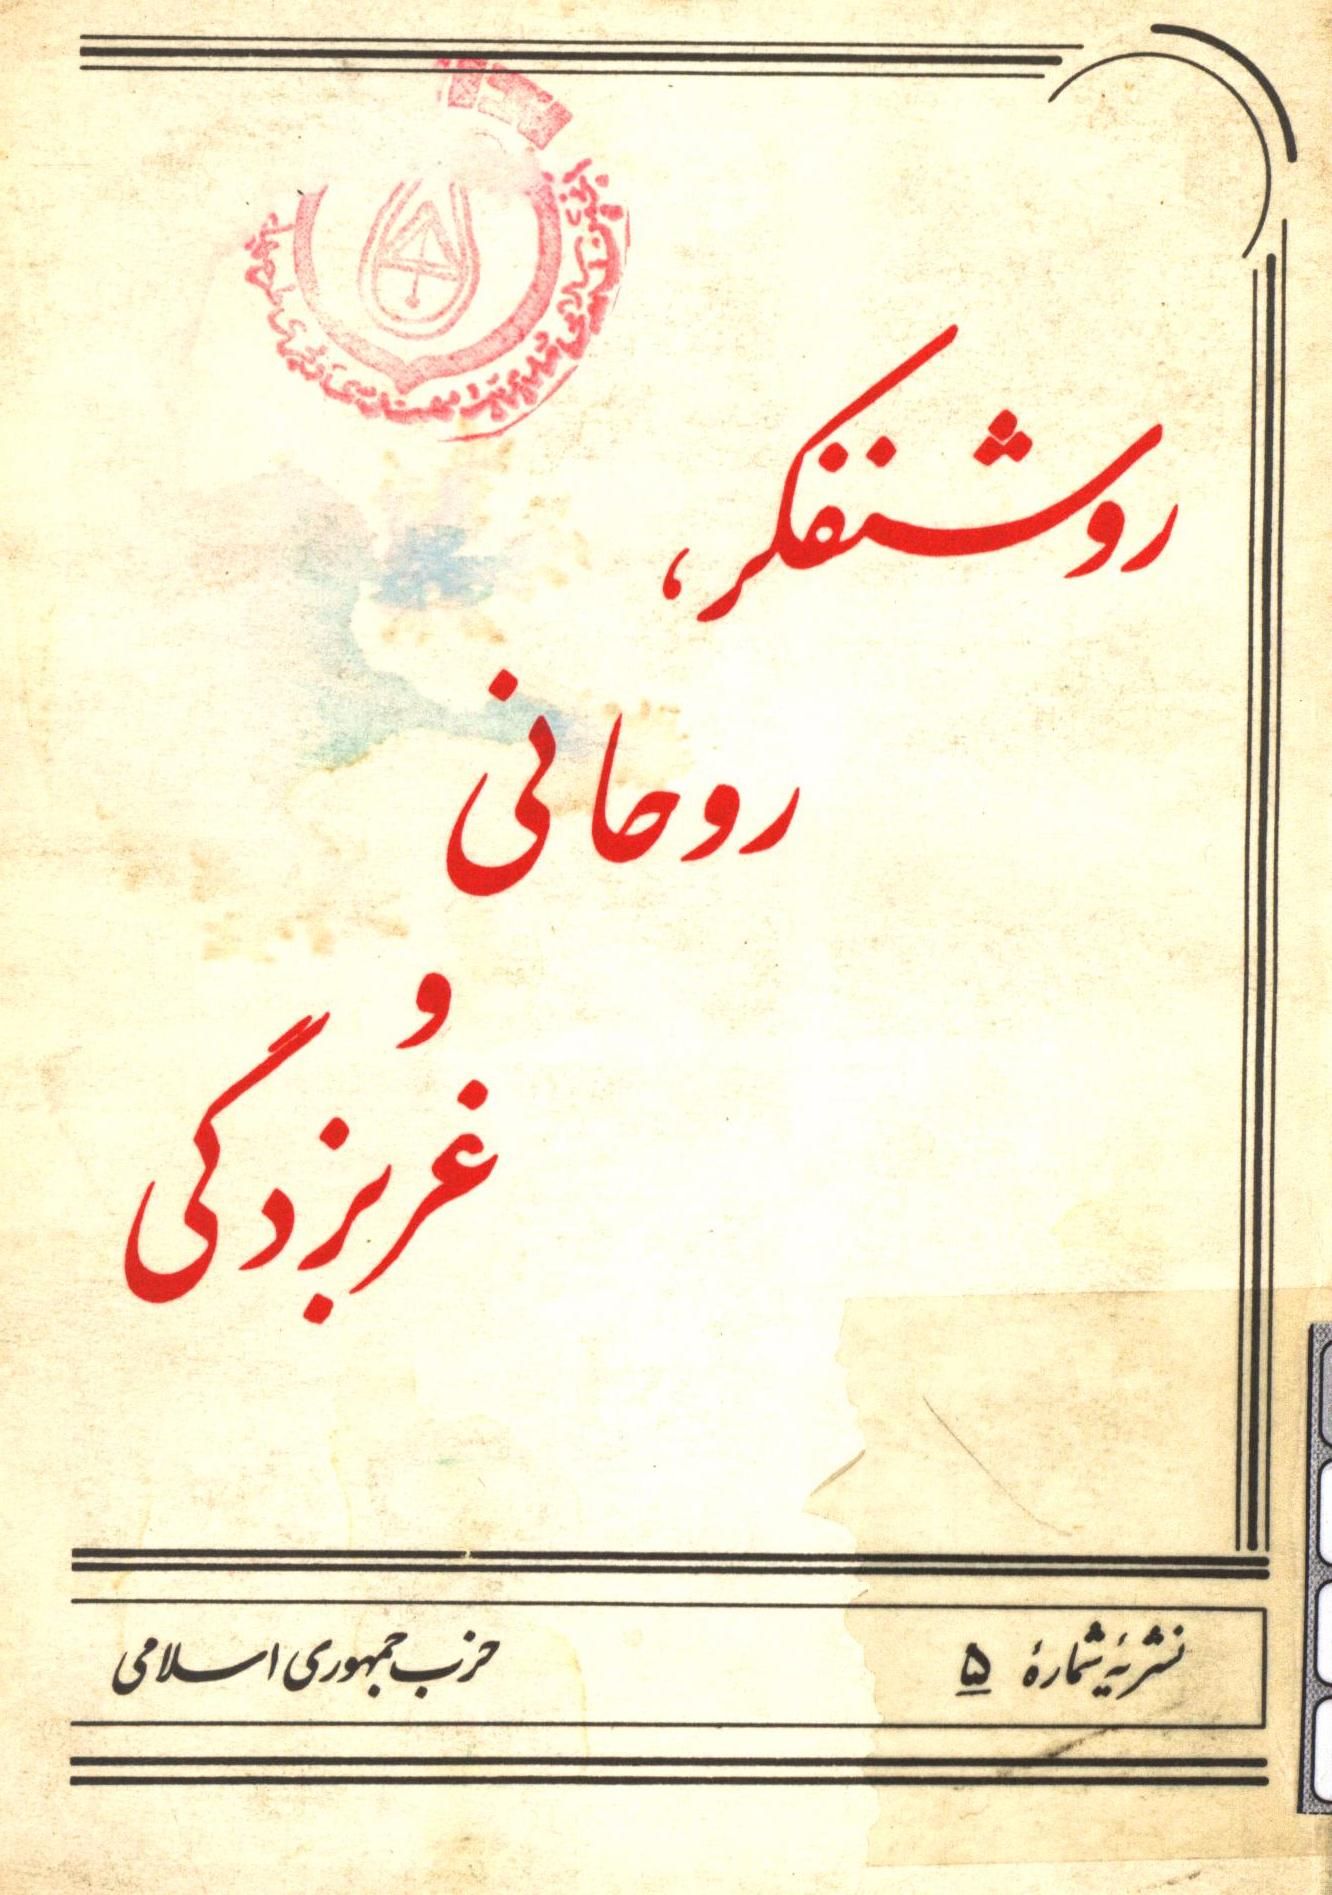 روشنفکر،
روحانی
و
غربزدگی
نشریهٔ شمارهٔ ۵
حزب جمهوری اسلامی